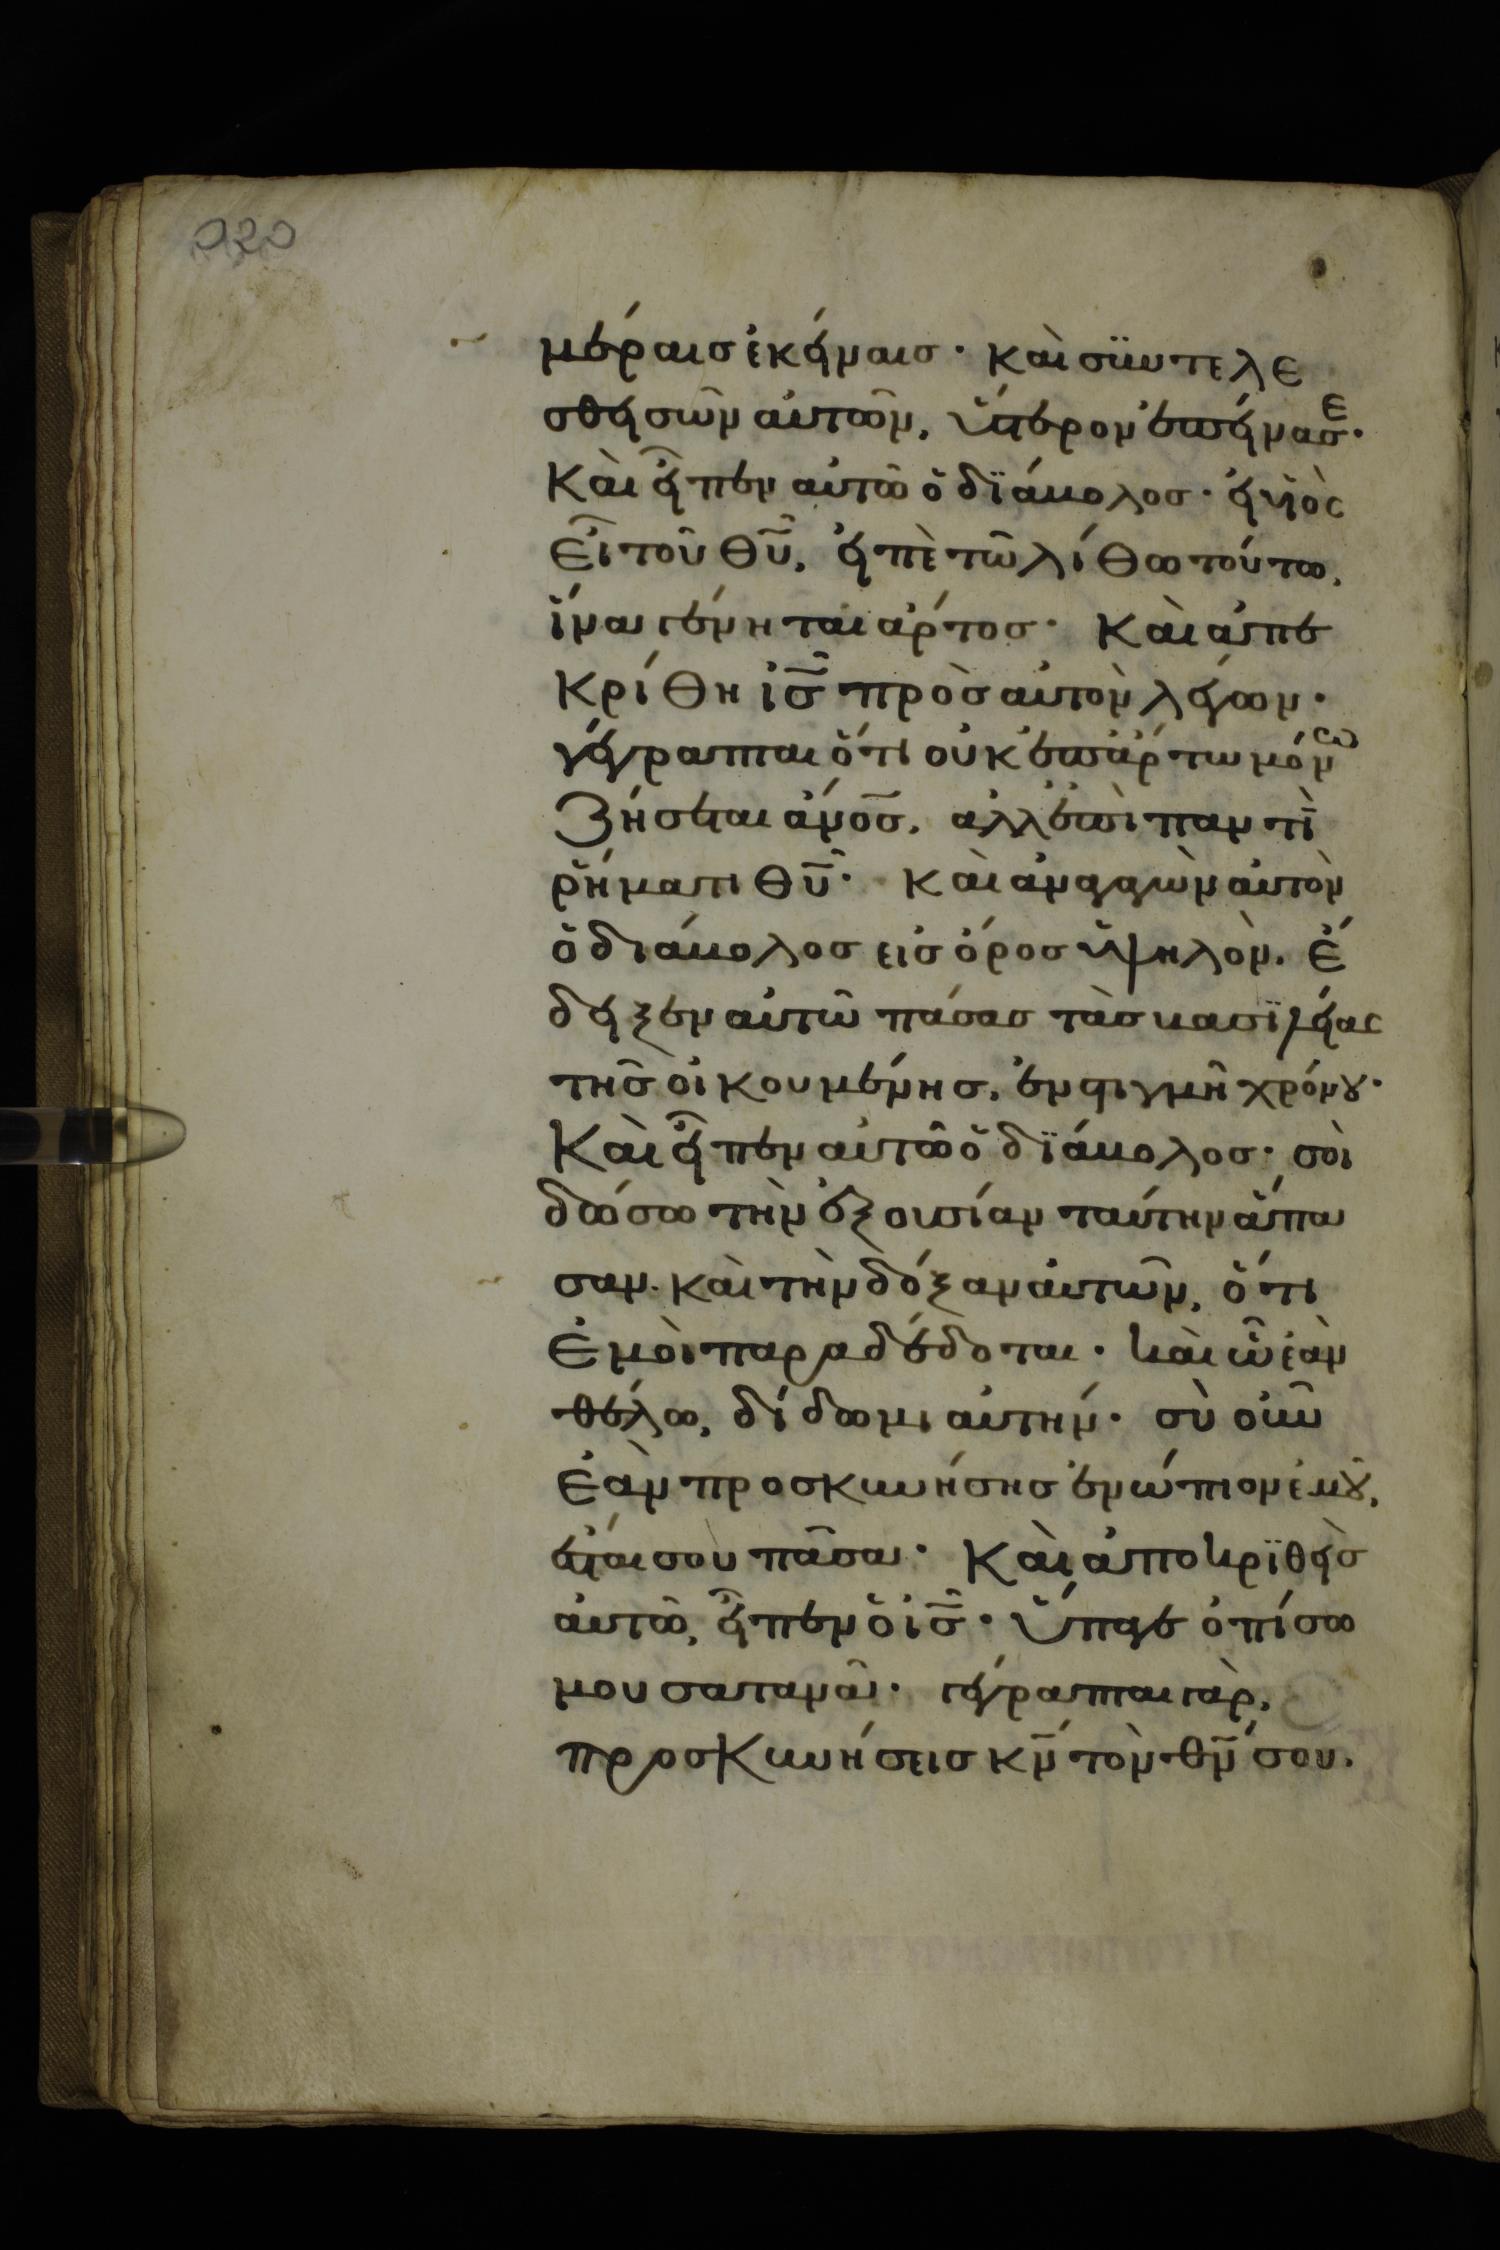 μέραις ἐκείναις· καὶ συντελε
σθεισῶν αὐτῶν, ὕστερον ἐπείνασε·
Καὶ εἶπεν αὐτῶ ὁ διάβολος· εἰ υἱὸς
εἶ τοῦ θ̅υ̅, εἰπὲ τῶ λίθω τούτω,
ἵνα γένηται ἄρτος· Καὶ ἀπε
κρίθη ι̅ς̅ πρὸς αὐτὸν λέγων·
γέγραπται ὅτι οὐκ ἐπ' ἄρτω μόνω
ζήσεται ἄνο̅ς̅, ἀλλ' ἐπὶ παντὶ
ῥήματι θ̅υ̅· Καὶ ἀναγαγὼν αὐτὸν
ὁ διάβολος εἰς ὄρος ὑψηλὸν. ἔ
δειξεν αὐτῶ πάσας τὰς βασιλείας
τῆς οἰκουμένης, ἐν στιγμῆ χρόνου·
Καὶ εἶπεν αὐτῶ ὁ διάβολος· σοὶ
δώσω τὴν ἐξουσίαν ταύτην ἅπα
σαν. καὶ τὴν δόξαν αὐτῶν, ὅτι
ἐμοὶ παραδέδοται· καὶ ὧ ἐὰν
θέλω, δίδωμι αὐτήν· σὺ οὖν
ἐὰν προσκυνήσης ἐνώπιον ἐμοῦ,
ἔσται σου πᾶσα· Καὶ ἀποκριθεὶς
αὐτῶ, εἶπεν ὁ ι̅ς̅· ὕπαγε ὀπίσω
μου σατανᾶ· γέγραπται γὰρ,
προσκυνήσεις κ̅ν̅ τὸν θ̅ν̅ σου.